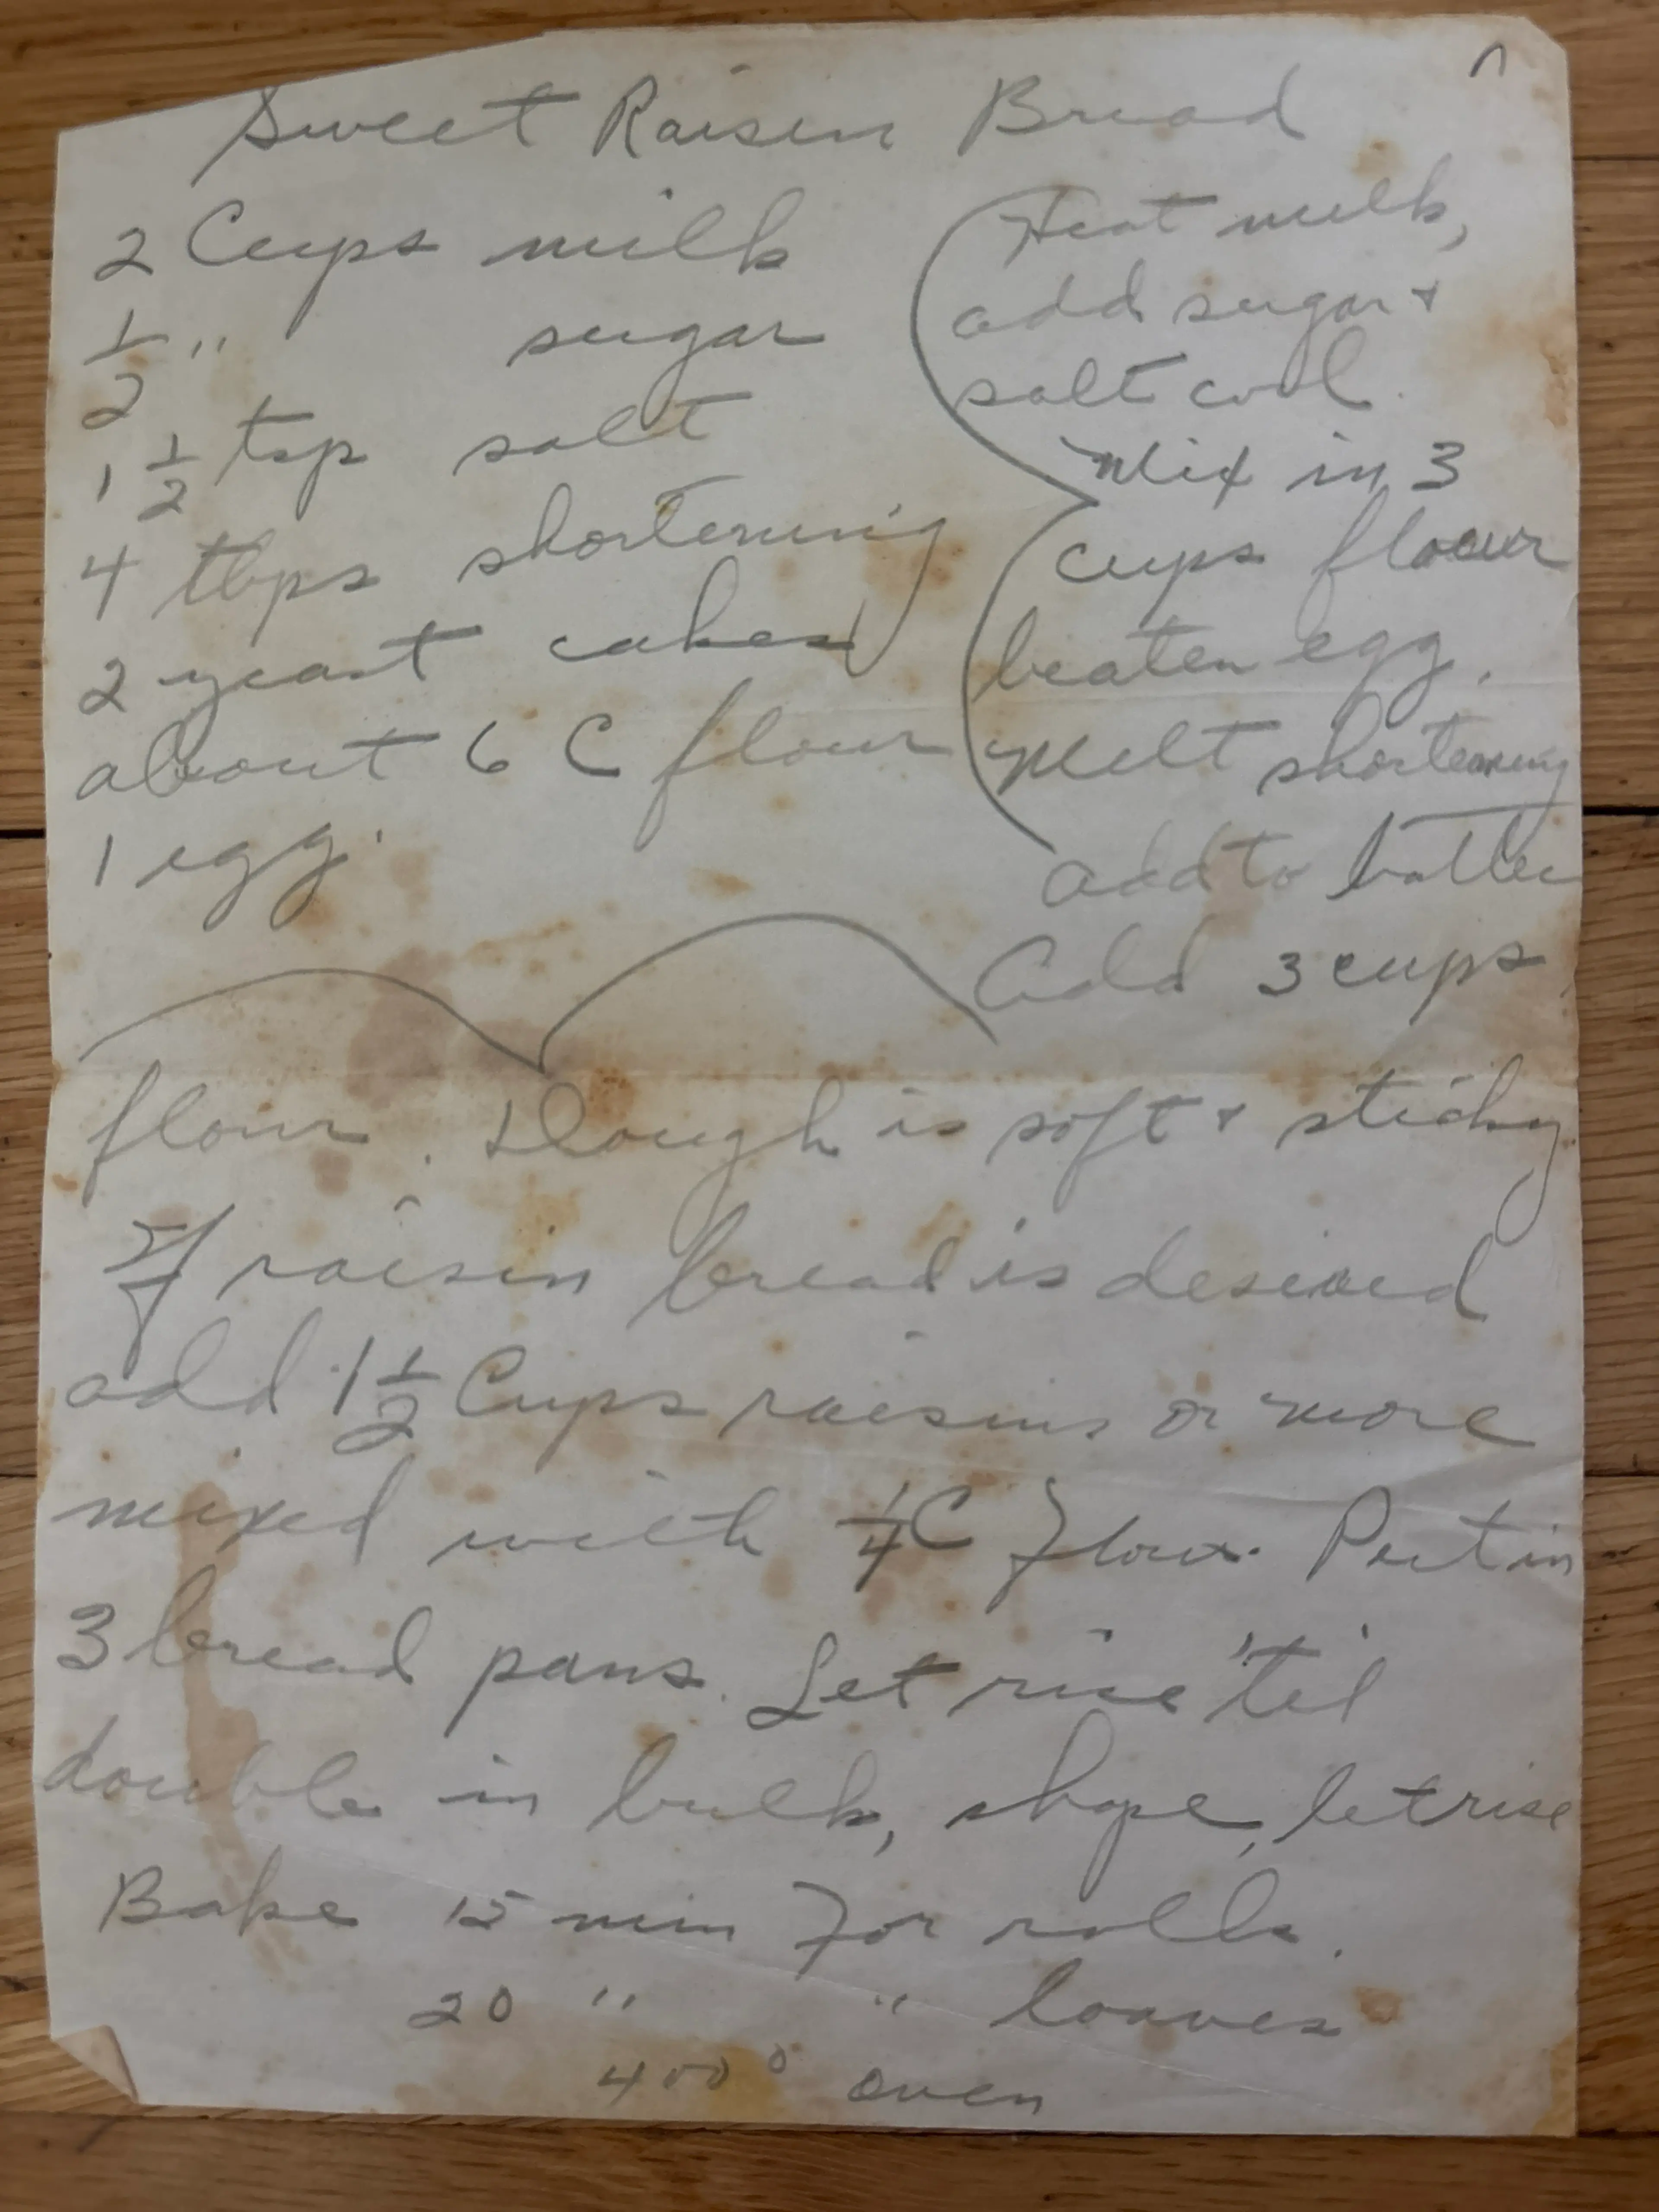 Sweet Raisin Bread
2 Cups milk
1/2 " sugar
1 1/2 tsp salt
4 tbps shortening
2 yeast cakes
about 6 C flour
1 egg.
Heat milk,
add sugar +
salt cool.
Mix in 3
cups flour
beaten egg.
Melt shortening
add to batter
Add 3 cups
flour. Dough is soft + sticky.
If raisin bread is desired
add 1 1/2 Cups raisins or more
mixed with 1/4 C flour. Put in
3 bread pans. Let rise 'til
double in bulk, shape, let rise
Bake 15 min for rolls.
20 " " loaves
400° oven